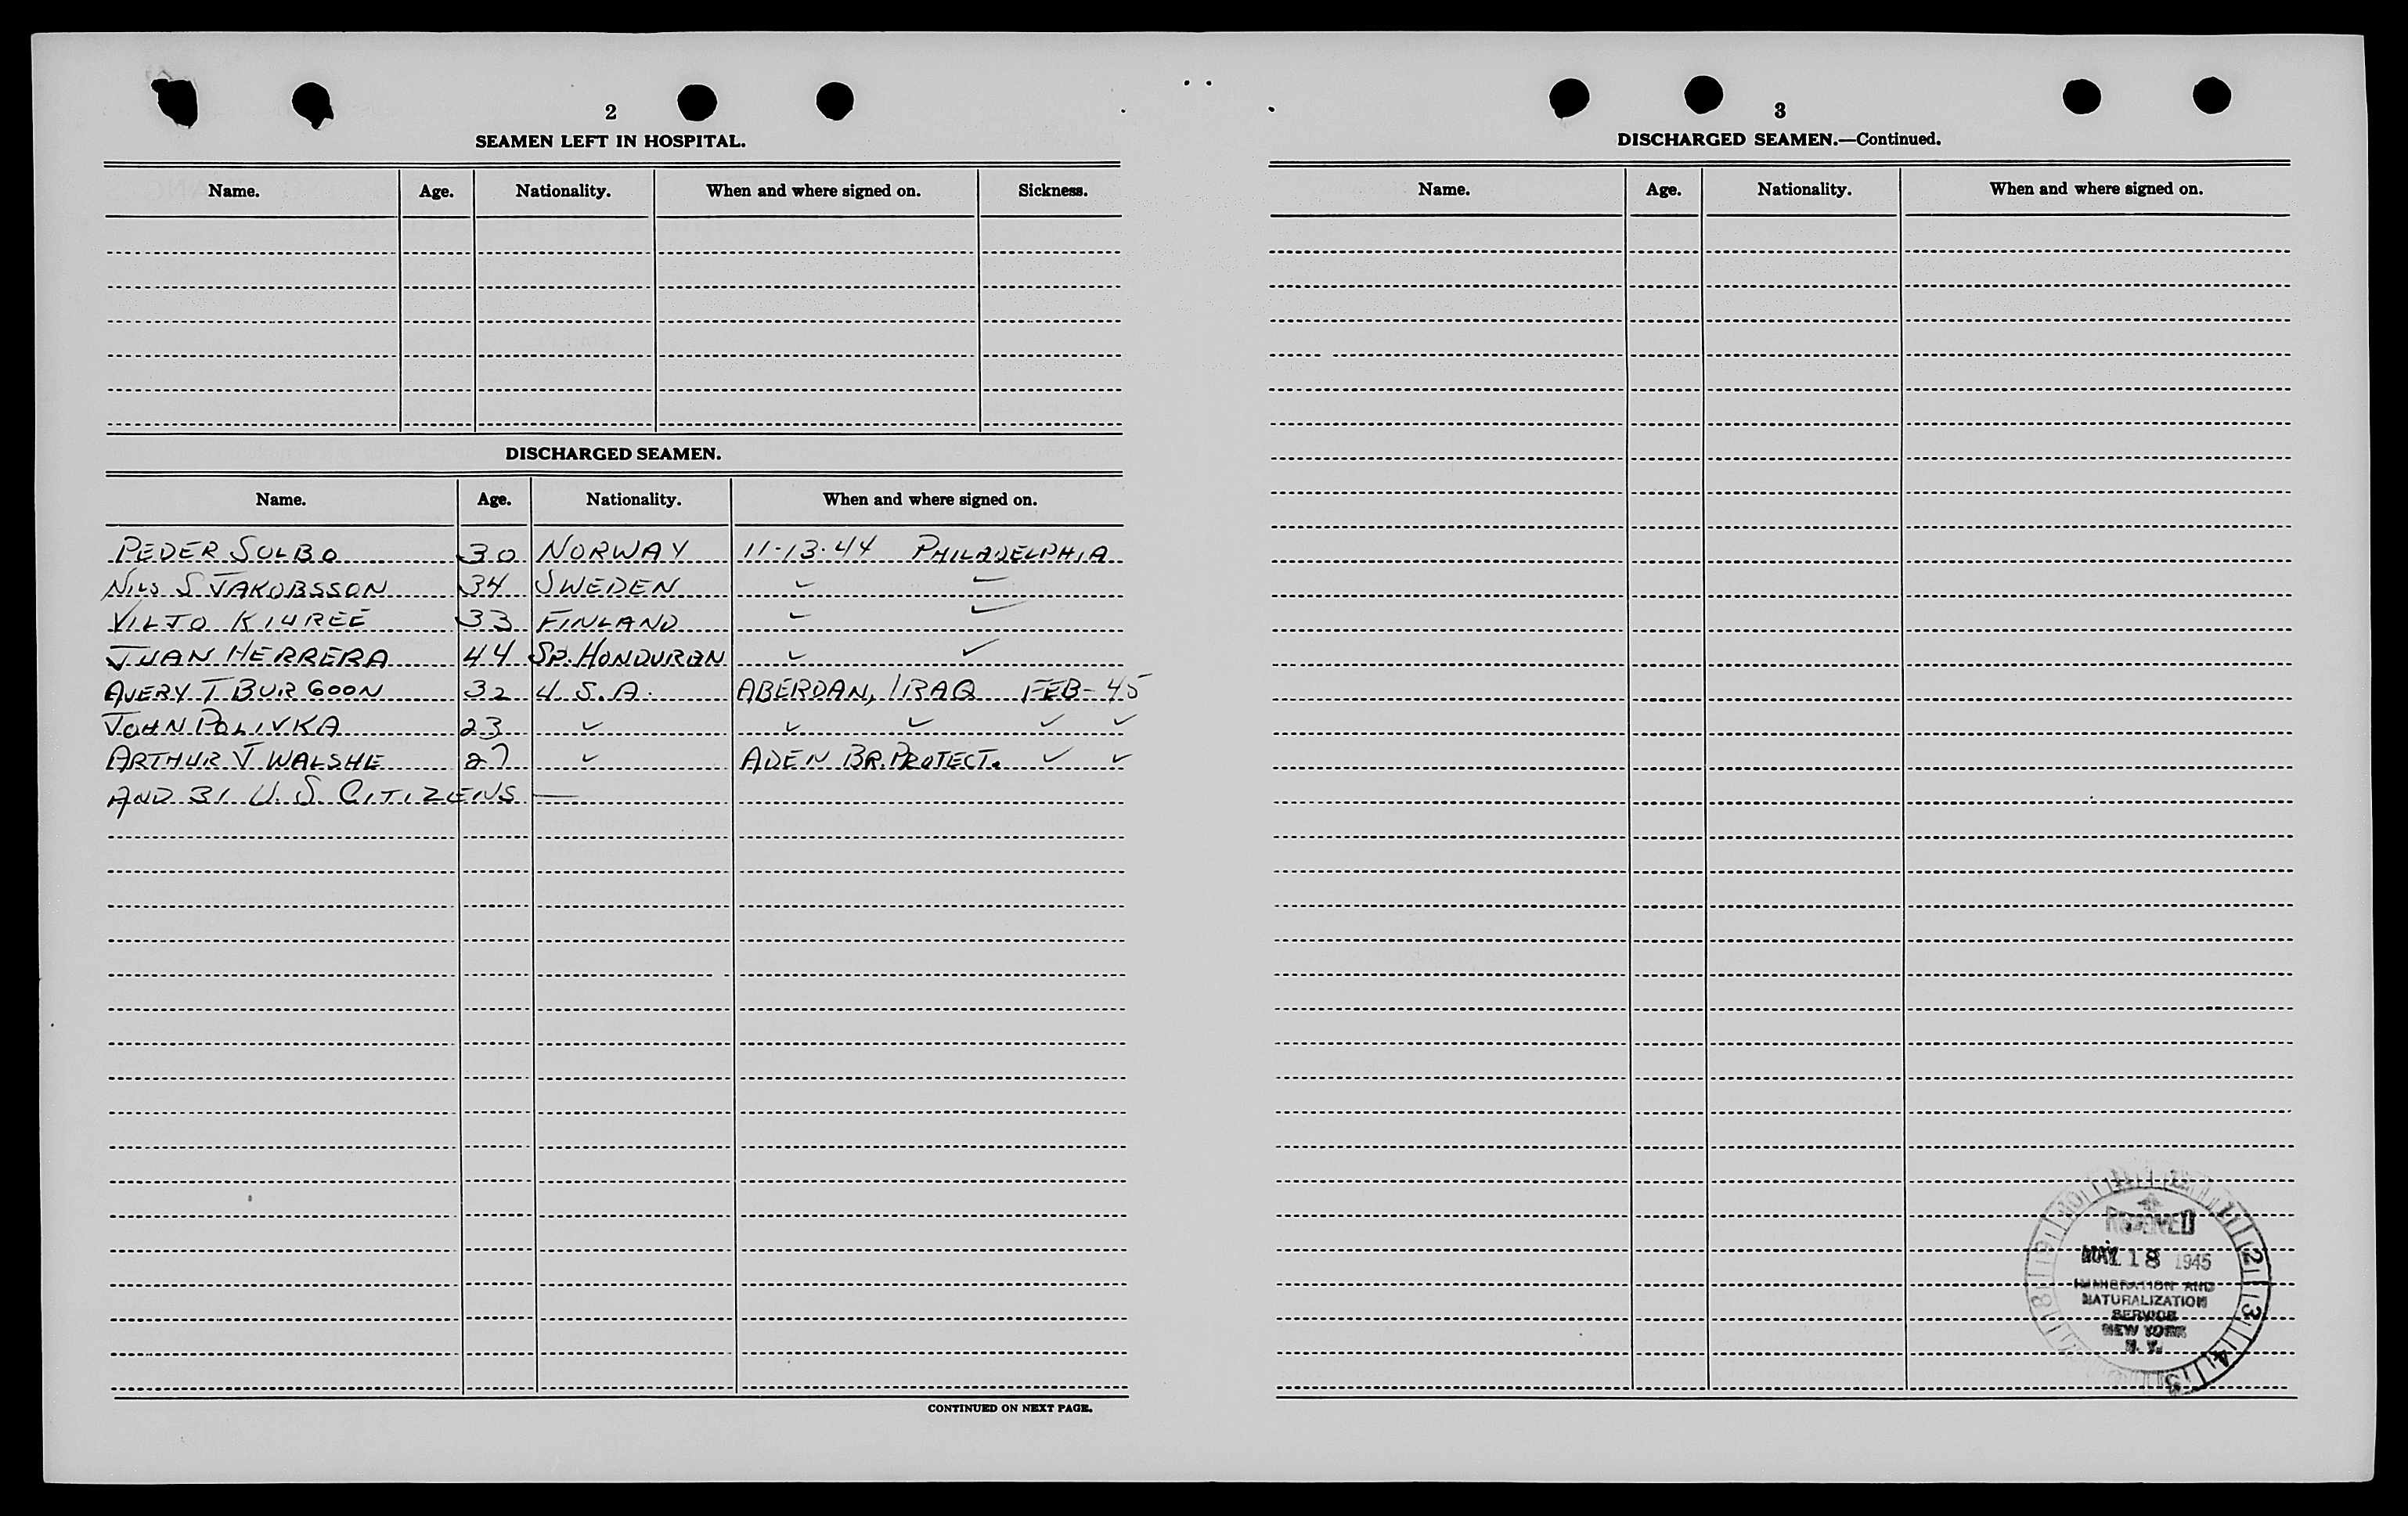 2
SEAMEN LEFT IN HOSPITAL.
Name. Age. Nationality. When and where signed on. Sickness.
DISCHARGED SEAMEN.
Name. Age. Nationality. When and where signed on.
PEDER SOLBO 30 NORWAY 11-13-44 PHILADELPHIA
NILS S JAKOBSSON 34 SWEDEN ✓ ✓
VILJO KIUREE 33 FINLAND ✓ ✓
JUAN HERRERA 44 SP. HONDURAN ✓ ✓
AVERY T BURGOON 32 U.S.A. ABERDAN, IRAQ FEB-45
JOHN POLIVKA 23 ✓ ✓ ✓ ✓ ✓
ARTHUR J WALSHE 27 ✓ ADEN BR. PROTECT. ✓ ✓
AND 31 U.S CITIZENS —
CONTINUED ON NEXT PAGE.
3
DISCHARGED SEAMEN.—Continued.
Name. Age. Nationality. When and where signed on.
RECEIVED
MAY 18 1945
IMMIGRATION AND
NATURALIZATION
SERVICE
NEW YORK
N. Y.